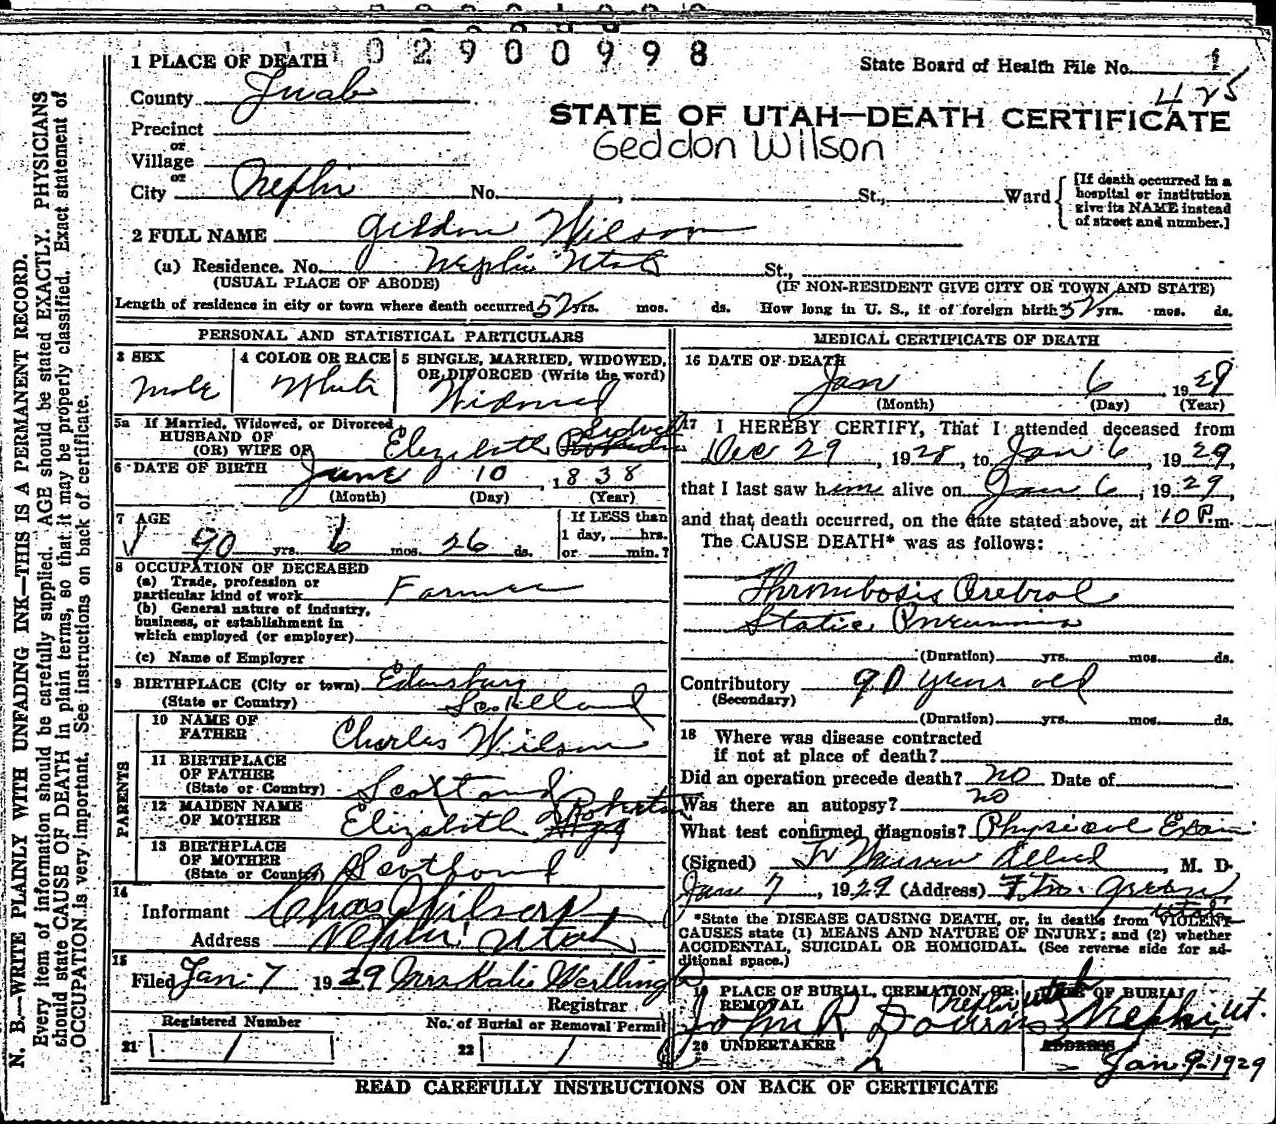 02900998
1 PLACE OF DEATH
State Board of Health File No. 1
425
County Juab
STATE OF UTAH—DEATH CERTIFICATE
Precinct
or
Geddon Wilson
Village
or
City Nephi No. , St., Ward
[If death occurred in a hospital or institution give its NAME instead of street and number.]
2 FULL NAME Wilson
(a) Residence. No. Nephi Utah St.,
(USUAL PLACE OF ABODE) (IF NON-RESIDENT GIVE CITY OR TOWN AND STATE)
Length of residence in city or town where death occurred 52 yrs. mos. ds. How long in U. S., if of foreign birth yrs. mos. ds.
PERSONAL AND STATISTICAL PARTICULARS
3 SEX Male
4 COLOR OR RACE White
5 SINGLE, MARRIED, WIDOWED, OR DIVORCED (Write the word)
Widowed
5a If Married, Widowed, or Divorced
HUSBAND OF
(OR) WIFE OF Elizabeth
6 DATE OF BIRTH June 10, 1838
(Month) (Day) (Year)
7 AGE
90 yrs. 6 mos. 26 ds.
If LESS than
1 day, hrs.
or min.?
8 OCCUPATION OF DECEASED
(a) Trade, profession or
particular kind of work Farmer
(b) General nature of industry,
business, or establishment in
which employed (or employer)
(c) Name of Employer
9 BIRTHPLACE (City or town)
(State or Country) Scotland
PARENTS
10 NAME OF
FATHER Charles Wilson
11 BIRTHPLACE
OF FATHER
(State or Country) Scotland
12 MAIDEN NAME
OF MOTHER Elizabeth
13 BIRTHPLACE
OF MOTHER
(State or Country) Scotland
14
Informant Chas Wilson
Address Nephi Utah
15
Filed Jan. 7 1929 Mrs Katie
Registrar
Registered Number
21 1
No. of Burial or Removal Permit
22 1
MEDICAL CERTIFICATE OF DEATH
16 DATE OF DEATH
Jan 6, 1929
(Month) (Day) (Year)
17 I HEREBY CERTIFY, That I attended deceased from
Dec 29, 1928, to Jan 6, 1929,
that I last saw him alive on Jan 6, 1929,
and that death occurred, on the date stated above, at 10 P.m.
The CAUSE DEATH* was as follows:
Thrombosis Crebral
Static Pneumonia
(Duration) yrs. mos. ds.
Contributory 90 years old
(Secondary)
(Duration) yrs. mos. ds.
18 Where was disease contracted
if not at place of death?
Did an operation precede death? no Date of
Was there an autopsy? no
What test confirmed diagnosis? Physical Exam
(Signed) , M. D.
7, 1929 (Address)
*State the DISEASE CAUSING DEATH, or, in deaths from VIOLENT
CAUSES state (1) MEANS AND NATURE OF INJURY; and (2) whether
ACCIDENTAL, SUICIDAL OR HOMICIDAL. (See reverse side for ad-
ditional space.)
19 PLACE OF BURIAL, CREMATION, OR
REMOVAL Nephi Utah
OF BURIAL
John R Nephi, Ut.
20 UNDERTAKER
ADDRESS
Jan 9-1929
READ CAREFULLY INSTRUCTIONS ON BACK OF CERTIFICATE
N. B.—WRITE PLAINLY WITH UNFADING INK—THIS IS A PERMANENT RECORD.
Every item of information should be carefully supplied. AGE should be stated EXACTLY. PHYSICIANS
should state CAUSE OF DEATH in plain terms, so that it may be properly classified. Exact statement of
OCCUPATION is very important. See instructions on back of certificate.